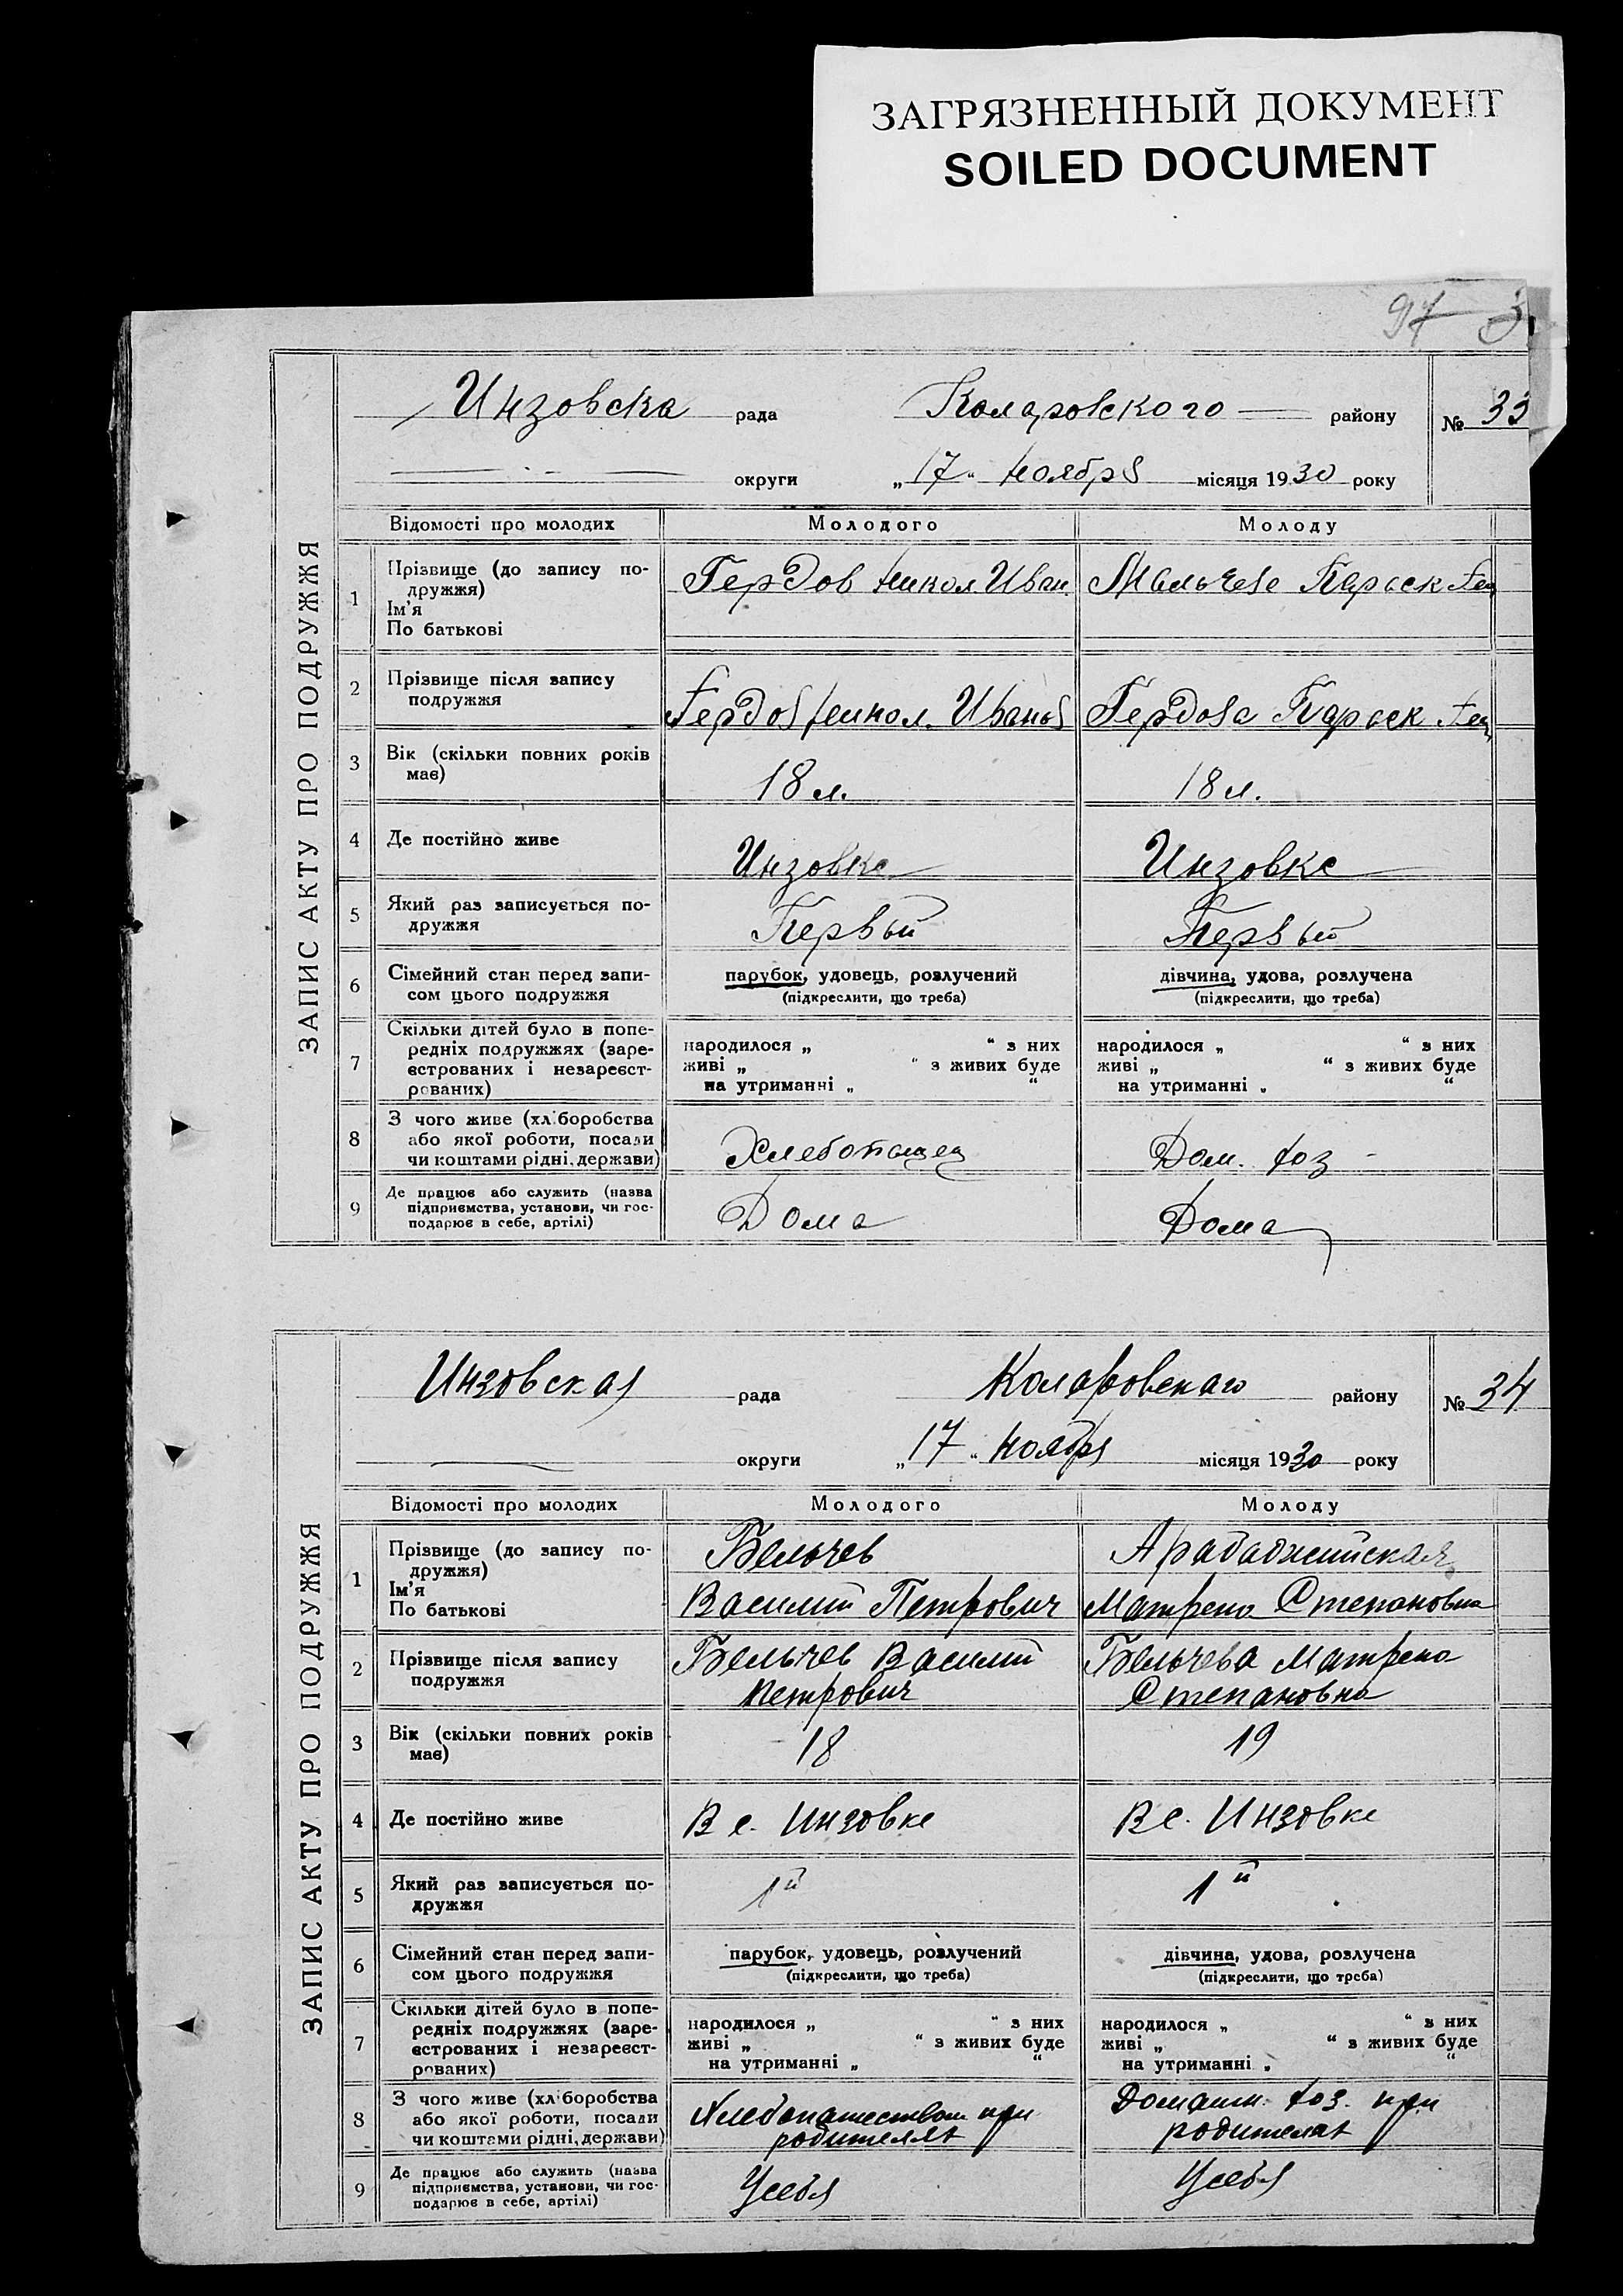 ЗАГРЯЗНЕННЫЙ ДОКУМЕНТ
SOILED DOCUMENT
97
ЗАПИС АКТУ ПРО ПОДРУЖЖЯ
Инзовска рада Коларовского району № 33
округи „17“ ноября місяця 1930 року
Відомості про молодих Молодого Молоду
1 Прізвище (до запису подружжя) Ім'я По батькові
Гердов Никол. Иван. Параск
2 Прізвище після запису подружжя
Гердов Никол. Иванов Гердова Параск
3 Вік (скільки повних років має) 18 л. 18 л.
4 Де постійно живе Инзовке Инзовке
5 Який раз записується подружжя Первый Первый
6 Сімейний стан перед записом цього подружжя парубок, удовець, розлучений (підкреслити, що треба) дівчина, удова, розлучена (підкреслити, що треба)
7 Скільки дітей було в попередніх подружжях (зареєстрованих і незареєстрованих) народилося „ “ з них живі „ “ з живих буде на утриманні „ “ народилося „ “ з них живі „ “ з живих буде на утриманні „ “
8 З чого живе (хліборобства або якої роботи, посади чи коштами рідні, держави) Хлебопашец Дом. хоз
9 Де працює або служить (назва підприємства, установи, чи господарює в себе, артілі) Дома Дома
ЗАПИС АКТУ ПРО ПОДРУЖЖЯ
Инзовская рада Коларовскаго району № 34
округи „17“ ноября місяця 1930 року
Відомості про молодих Молодого Молоду
1 Прізвище (до запису подружжя) Ім'я По батькові
Бельчев Арабаджийская
Василий Петрович Матрена Степановна
2 Прізвище після запису подружжя
Бельчев Василий Бельчева Матрена
Петрович Степановна
3 Вік (скільки повних років має) 18 19
4 Де постійно живе В с. Инзовке В с. Инзовке
5 Який раз записується подружжя 1й 1й
6 Сімейний стан перед записом цього подружжя парубок, удовець, розлучений (підкреслити, що треба) дівчина, удова, розлучена (підкреслити, що треба)
7 Скільки дітей було в попередніх подружжях (зареєстрованих і незареєстрованих) народилося „ “ з них живі „ “ з живих буде на утриманні „ “ народилося „ “ з них живі „ “ з живих буде на утриманні „ “
8 З чого живе (хліборобства або якої роботи, посади чи коштами рідні, держави) Хлебопашеством при родителях Домашн. хоз. при родителях
9 Де працює або служить (назва підприємства, установи, чи господарює в себе, артілі) У себя У себя